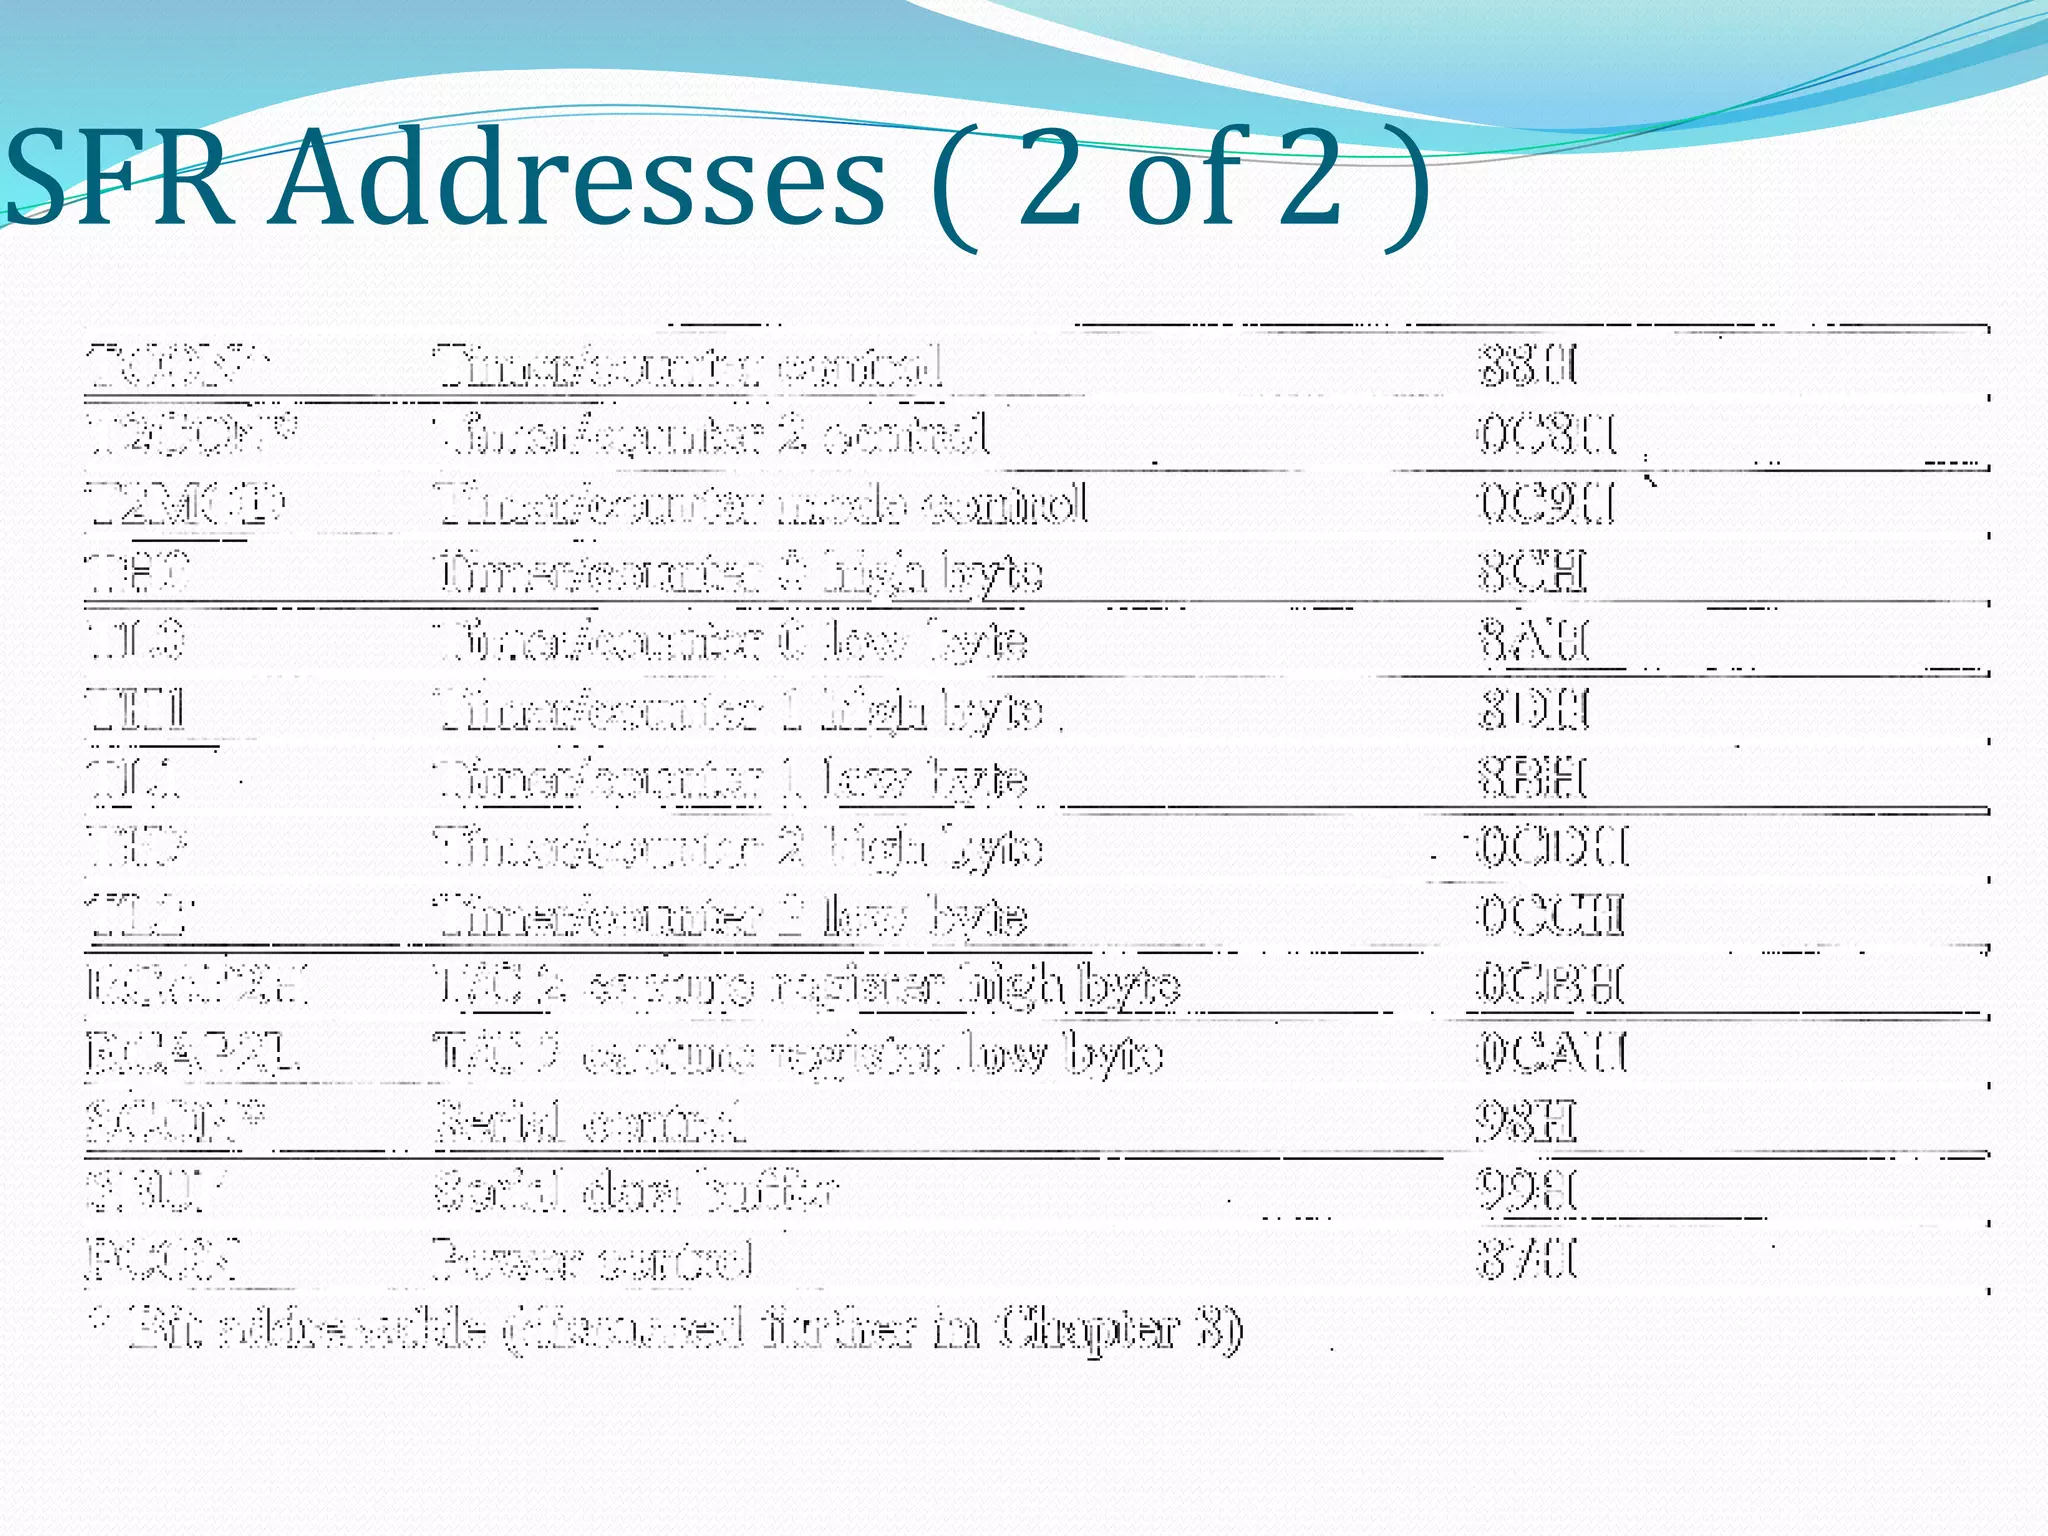 SFR Addresses ( 2 of 2 )
TCON* Timer/counter control 88H
T2CON* Timer/counter 2 control 0C8H
T2MOD Timer/counter mode control 0C9H
TH0 Timer/counter 0 high byte 8CH
TL0 Timer/counter 0 low byte 8AH
TH1 Timer/counter 1 high byte 8DH
TL1 Timer/counter 1 low byte 8BH
TH2 Timer/counter 2 high byte 0CDH
TL2 Timer/counter 2 low byte 0CCH
RCAP2H T/C 2 capture register high byte 0CBH
RCAP2L T/C 2 capture register low byte 0CAH
SCON* Serial control 98H
SBUF Serial data buffer 99H
PCON Power control 87H
* Bit addressable (discussed further in Chapter 3)